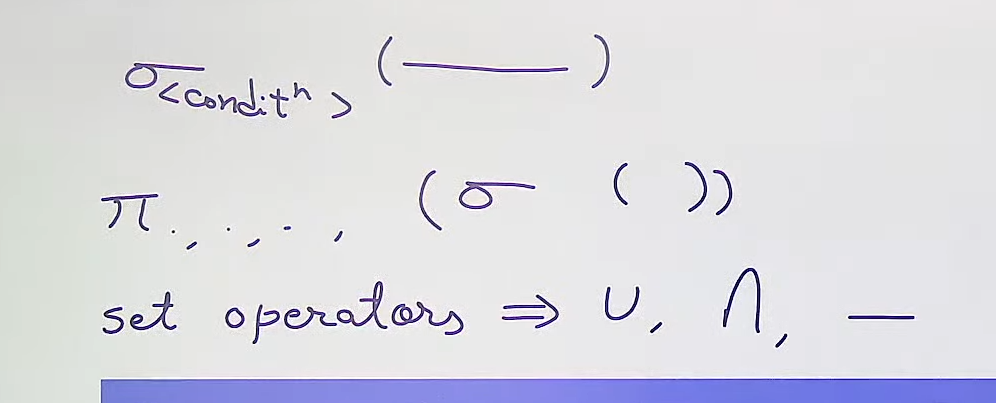 σ<conditⁿ> (———)
π.,.,., (σ ( ))
set operators ⇒ ∪, ∩, —